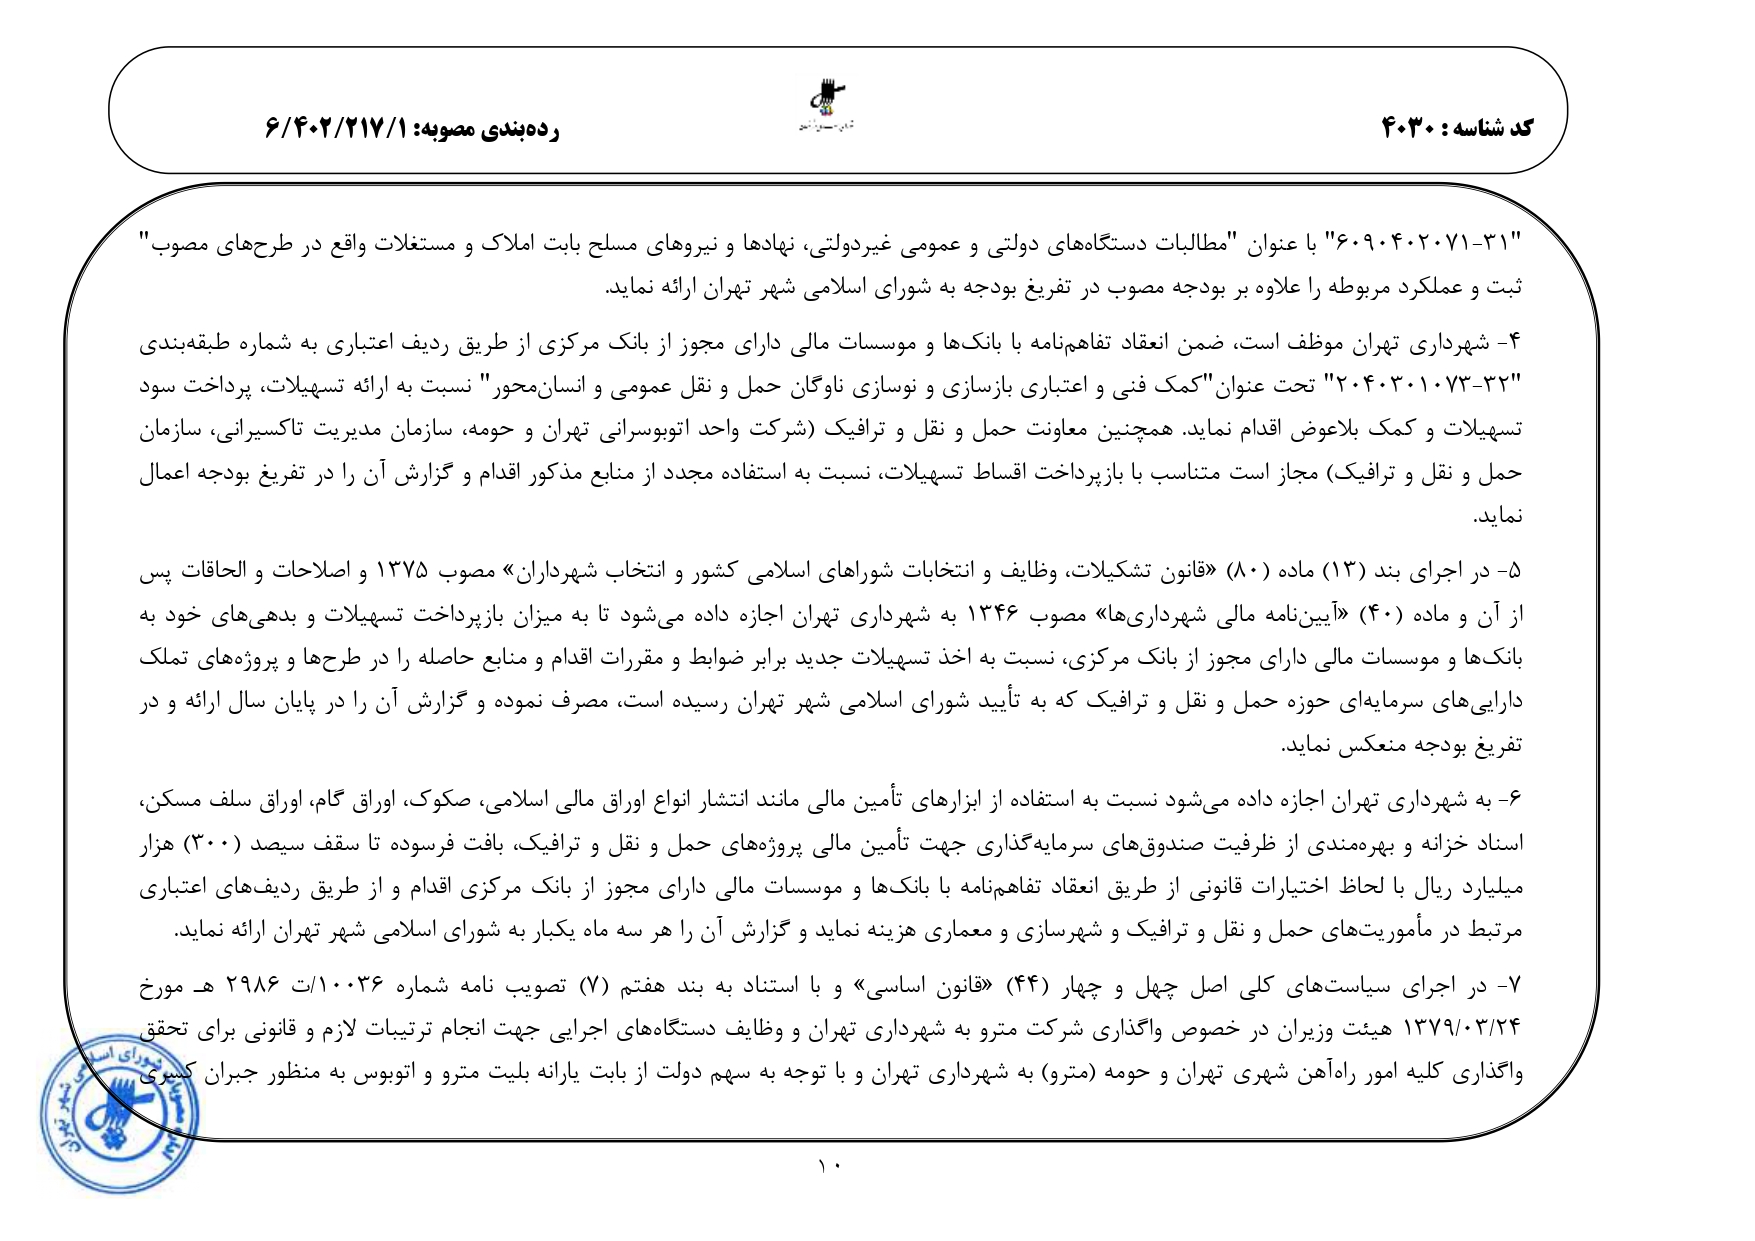 کد شناسه : ۴۰۳۰
رده‌بندی مصوبه: ۶/۴۰۲/۲۱۷/۱
"۳۱-۶۰۹۰۴۰۲۰۷۱" با عنوان "مطالبات دستگاه‌های دولتی و عمومی غیردولتی، نهادها و نیروهای مسلح بابت املاک و مستغلات واقع در طرح‌های مصوب"
ثبت و عملکرد مربوطه را علاوه بر بودجه مصوب در تفریغ بودجه به شورای اسلامی شهر تهران ارائه نماید.
۴- شهرداری تهران موظف است، ضمن انعقاد تفاهم‌نامه با بانک‌ها و موسسات مالی دارای مجوز از بانک مرکزی از طریق ردیف اعتباری به شماره طبقه‌بندی
"۳۲-۲۰۴۰۳۰۱۰۷۳" تحت عنوان"کمک فنی و اعتباری بازسازی و نوسازی ناوگان حمل و نقل عمومی و انسان‌محور" نسبت به ارائه تسهیلات، پرداخت سود
تسهیلات و کمک بلاعوض اقدام نماید. همچنین معاونت حمل و نقل و ترافیک (شرکت واحد اتوبوسرانی تهران و حومه، سازمان مدیریت تاکسیرانی، سازمان
حمل و نقل و ترافیک) مجاز است متناسب با بازپرداخت اقساط تسهیلات، نسبت به استفاده مجدد از منابع مذکور اقدام و گزارش آن را در تفریغ بودجه اعمال
نماید.
۵- در اجرای بند (۱۳) ماده (۸۰) «قانون تشکیلات، وظایف و انتخابات شوراهای اسلامی کشور و انتخاب شهرداران» مصوب ۱۳۷۵ و اصلاحات و الحاقات پس
از آن و ماده (۴۰) «آیین‌نامه مالی شهرداری‌ها» مصوب ۱۳۴۶ به شهرداری تهران اجازه داده می‌شود تا به میزان بازپرداخت تسهیلات و بدهی‌های خود به
بانک‌ها و موسسات مالی دارای مجوز از بانک مرکزی، نسبت به اخذ تسهیلات جدید برابر ضوابط و مقررات اقدام و منابع حاصله را در طرح‌ها و پروژه‌های تملک
دارایی‌های سرمایه‌ای حوزه حمل و نقل و ترافیک که به تأیید شورای اسلامی شهر تهران رسیده است، مصرف نموده و گزارش آن را در پایان سال ارائه و در
تفریغ بودجه منعکس نماید.
۶- به شهرداری تهران اجازه داده می‌شود نسبت به استفاده از ابزارهای تأمین مالی مانند انتشار انواع اوراق مالی اسلامی، صکوک، اوراق گام، اوراق سلف مسکن،
اسناد خزانه و بهره‌مندی از ظرفیت صندوق‌های سرمایه‌گذاری جهت تأمین مالی پروژه‌های حمل و نقل و ترافیک، بافت فرسوده تا سقف سیصد (۳۰۰) هزار
میلیارد ریال با لحاظ اختیارات قانونی از طریق انعقاد تفاهم‌نامه با بانک‌ها و موسسات مالی دارای مجوز از بانک مرکزی اقدام و از طریق ردیف‌های اعتباری
مرتبط در مأموریت‌های حمل و نقل و ترافیک و شهرسازی و معماری هزینه نماید و گزارش آن را هر سه ماه یکبار به شورای اسلامی شهر تهران ارائه نماید.
۷- در اجرای سیاست‌های کلی اصل چهل و چهار (۴۴) «قانون اساسی» و با استناد به بند هفتم (۷) تصویب نامه شماره ۱۰۰۳۶/ت ۲۹۸۶ هـ مورخ
۱۳۷۹/۰۳/۲۴ هیئت وزیران در خصوص واگذاری شرکت مترو به شهرداری تهران و وظایف دستگاه‌های اجرایی جهت انجام ترتیبات لازم و قانونی برای تحقق
واگذاری کلیه امور راه‌آهن شهری تهران و حومه (مترو) به شهرداری تهران و با توجه به سهم دولت از بابت یارانه بلیت مترو و اتوبوس به منظور جبران کسری
اداره مصوبات شورای اسلامی شهر تهران
۱۰